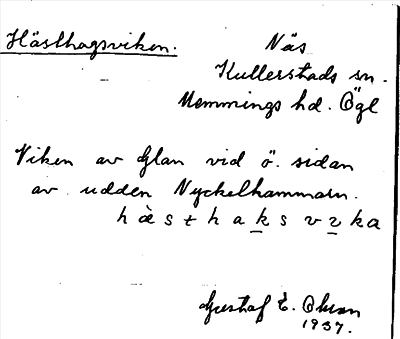 Hästhagsviken. Näs
Kullerstads sn.
Memmings hd. Ögl
Viken av Glan vid ö. sidan
av udden Nyckelhammarn.
h æ̀ s t h a k s v ɪ k a
Gustaf E.
1937.